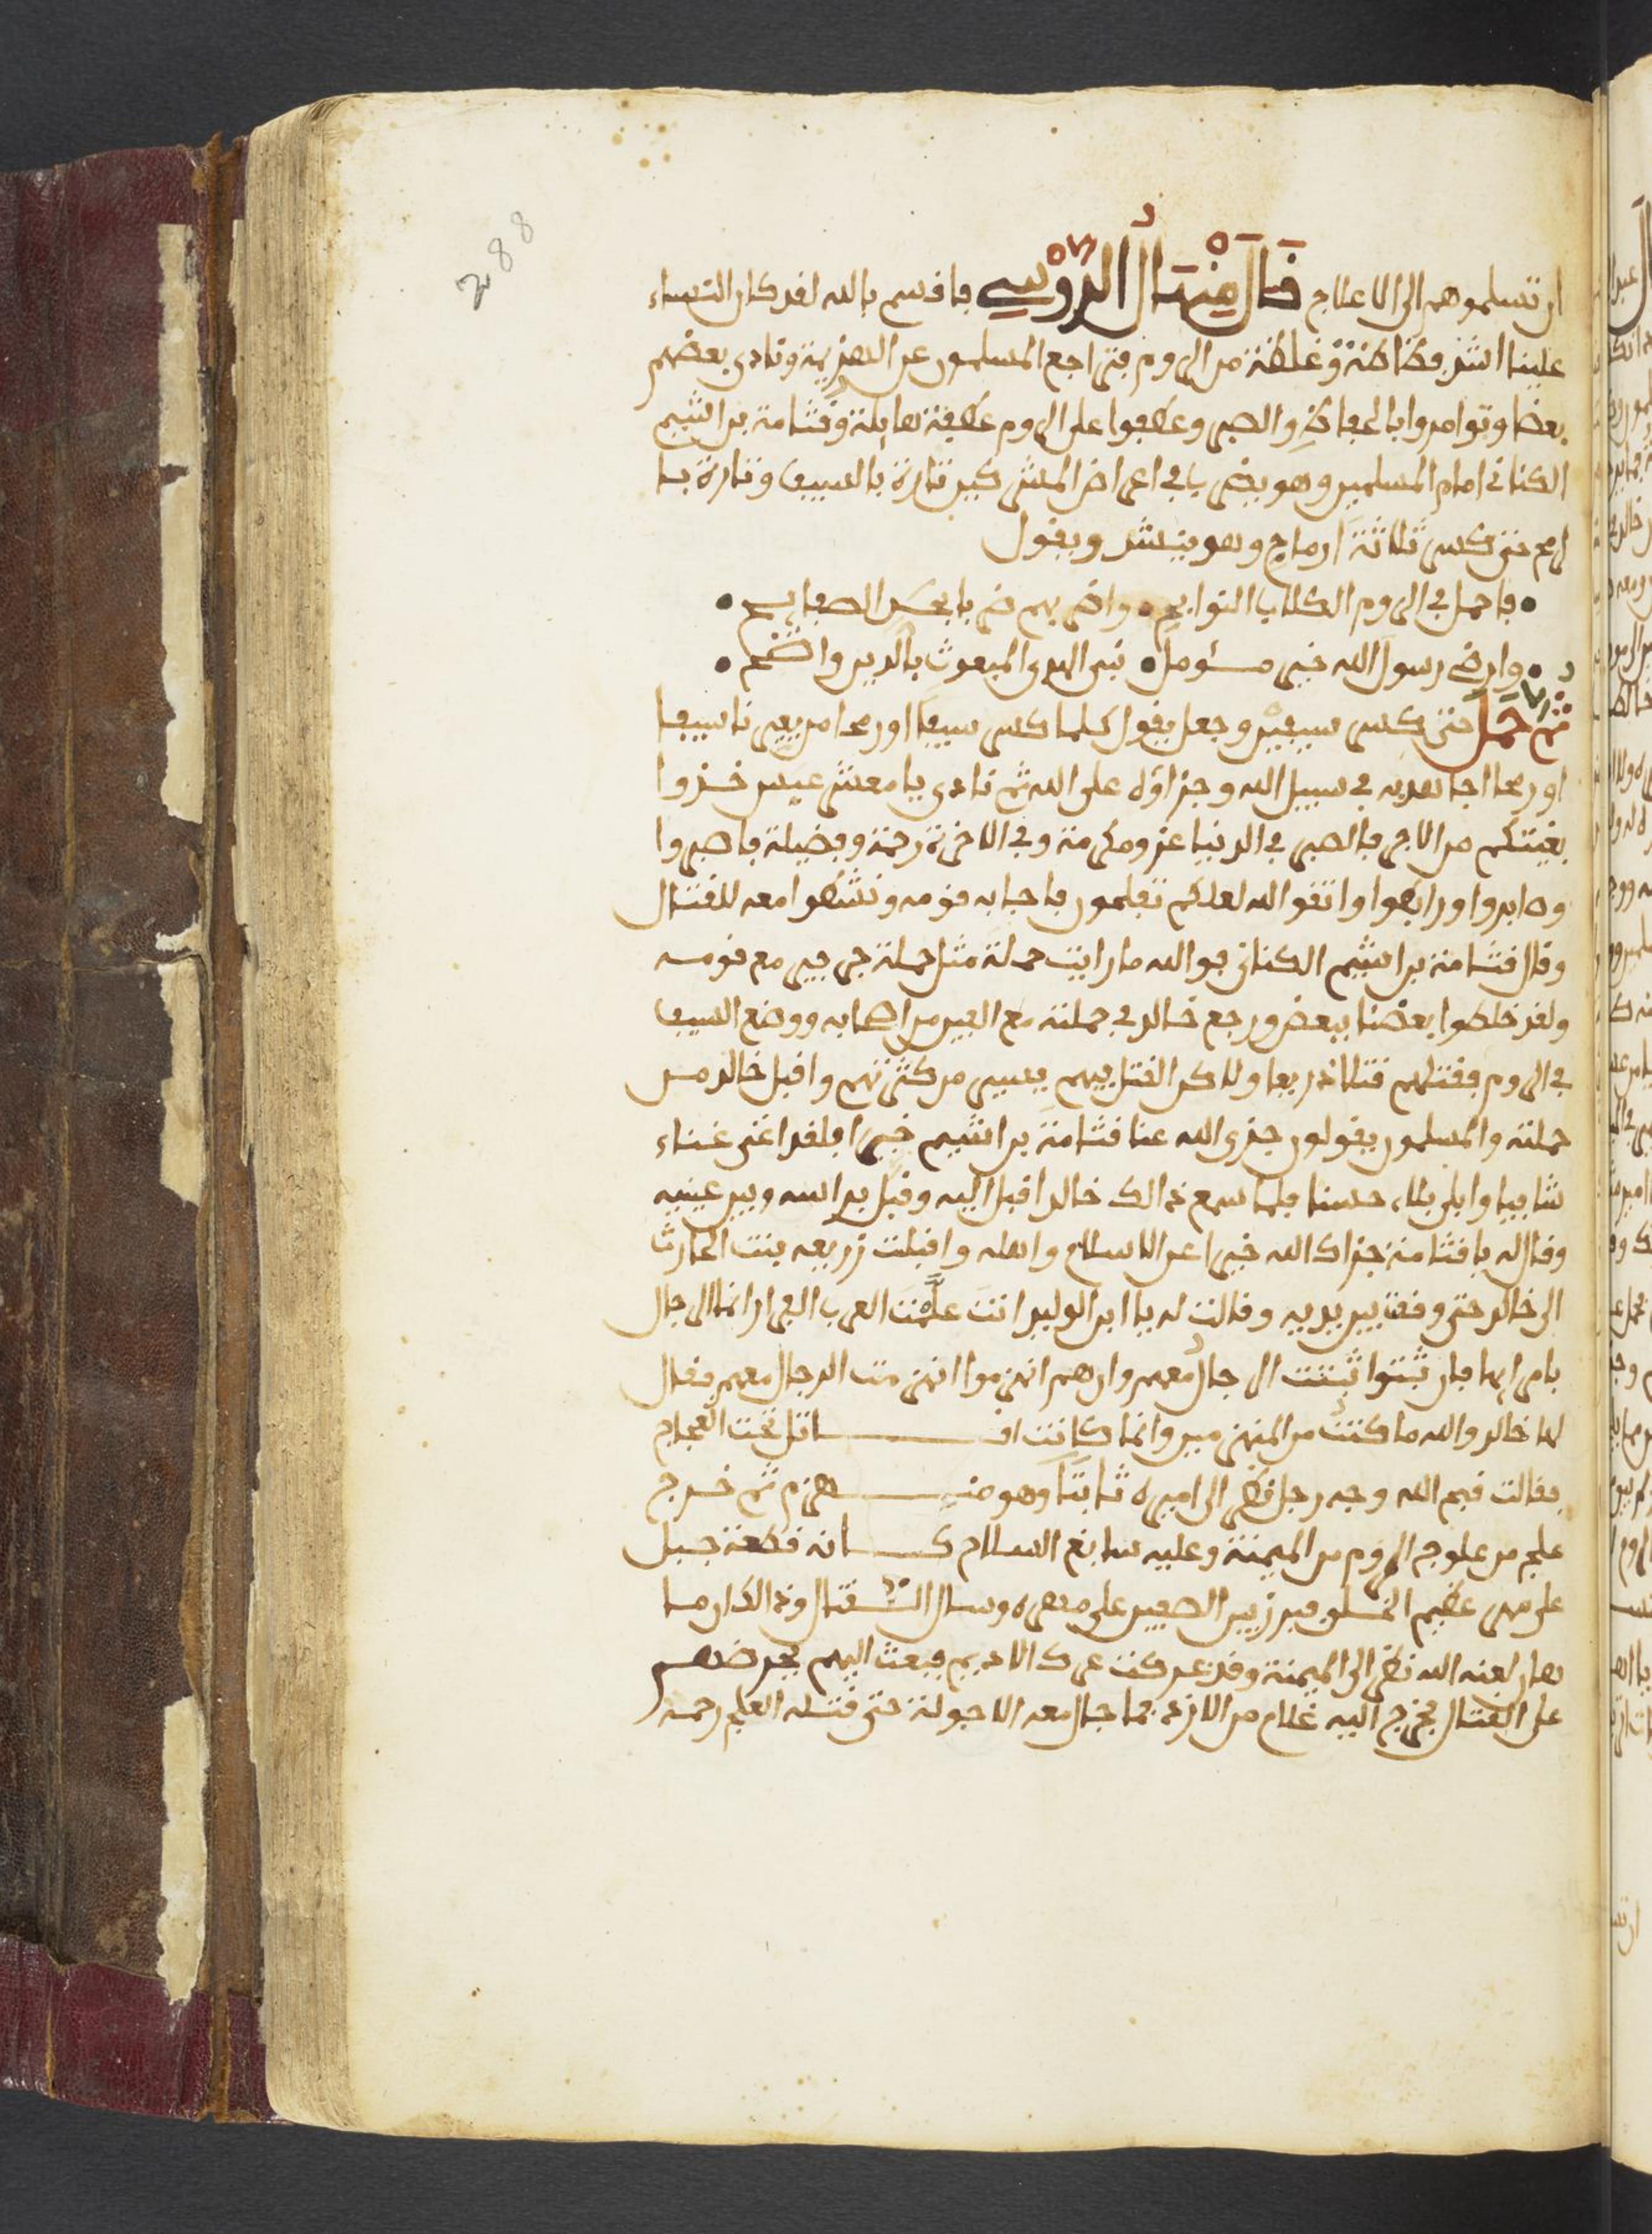 288
ان تسلموهم الى الاعلاج قال منهال الدوسي فاقسم بالله لقد كان النساء
علينا اشد فظاظة وغلظة من الروم فتراجع المسلمون عن الهزيمة ونادى بعضهم
بعضا وتوامروا بالحفاظ والصبر وعطفوا على الروم عطفة هايلة وقثامة بن اشيم
الكناني امام المسلمين وهو يضرب في اعراض المشركين تارة بالسيف وتارة با
لرمح حتى كسر ثلاثة ارماح وهو ينشد ويقول
• فاحمل في الروم الكلاب النوابح • واضربهم ضربا بحد الصفايح •
• وارض رسول الله خير مسئومل • نبي الهدى المبعوث بالدين واضح •
ثم حمل حتى كسر سيفين وجعل يقول كلما كسر سيفا او رمحا من يعيرنا سيفا
او رمحا اجاهد به في سبيل الله وجزاؤه على الله ثم نادى يا معشر عبس خذوا
بغيتكم من الاجر فالصبر في الدنيا عز ومكرمة وفي الاخرة رحمة وفضيلة فاصبروا
وصابروا ورابطوا واتقوا الله لعلكم تفلحون فاجابه قومه ونشطوا معه للقتال
وقال قثامة بن اشيم الكناني فوالله ما رايت حملة مثل حملة جرجير مع قومه
ولقد خلطوا بعضنا ببعض ورجع خالد في حملته مع الفين من اصحابه ووضع السيف
في الروم فقتلهم قتلا ذريعا ولاكن القتل فيهم يسير من كثرتهم واقبل خالد من
حملته والمسلمون يقولون جزى الله عنا قثامة بن اشيم خيرا فلقد اغنى غناء
شافيا وابلى بلاء حسنا فلما سمع ذالك خالد اقبل اليه وقبل براسه وبين عينيه
وقال له يا قثامة جزاك الله خيرا عن الاسلام واهله واقبلت زريعه بنت الحارث
الى خالد حتى وقفت بين يديه وقالت له يا ابن الوليد انت علمت العرب الفرار انما الرجال
بامرايها فان ثبتوا ثبتت الرجال معهم وان هم انهزموا انهزمت الرجال معهم فقال
لها خالد والله ما كنت من المنهزمين وانما كانت اقاتل تحت العجاج
فقالت قبح الله وجه رجل نظر الى اميره ثابتا وهو منهزم ثم خرج
علج من علوج الروم من الميمنة وعليه سابغ السلام كانه قطعة جبل
على مهر عظيم الخلق فبرز بين الصفين على مهره وسال القتال وذالك ان ما
هان لعنه الله نظر الى الميمنة وقد عركت عرك الاديم فبعث اليهم يحرضهم
على القتال فخرج اليه غلام من الازد فما جال معه الا جولة حتى قتله العلج رحمه